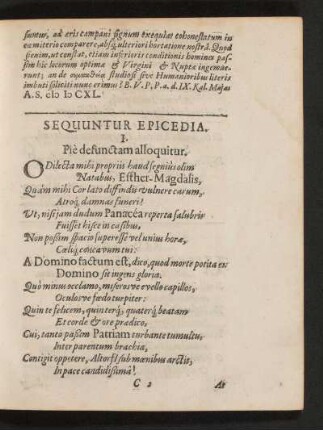 suntur, ad æris campani signum exequiar cohonestatum in
eo miteris comparere, absq; ulteriori hortatione nostrâ. Quod
si enim, ut constat, etiam inferioris conditionis homines pas-
sim hîc locorum optimæ & Virgini & Nuptæ ingemue-
runt; an de studiosi sive Humanioribus literis
imbuti soliciti nunc erimus? B. V. P. P. a. d. IX. Kal. Majas
A. S. cIↄ Iↄ CXL.
SEQUUNTUR EPICEDIA.
I.
Piè defunctam alloquitur.
O Dilecta mihi propriis haud segniùs olim
Natabus, Esther-Magdalis,
Quàm mihi Cor lato diffindis vulnere carum,
Atroq; damnas funeri!
Ut, nisi jam dudum Panacéa reperta salubris
Fuisset hisce in casibus,
Non possim spacio superesse vel unius horæ,
Cœliq; conca vum tui:
A DOmino factum est, dico, quod morte potita ex
Domino sit ingens gloria.
Quò minus occlamo, miseros ve evello capillos,
Oculos ve fœdo turpiter:
Quin te felicem, quinterq́;, quaterq́; beatam
Et corde & ore prædico,
Cui, tanto passim Patriam turbante tumultu,
Inter parentum brachia,
Contigit oppetere, Altorfi sub mœnibus arctis,
In pace candidissimâ!
C 2
At